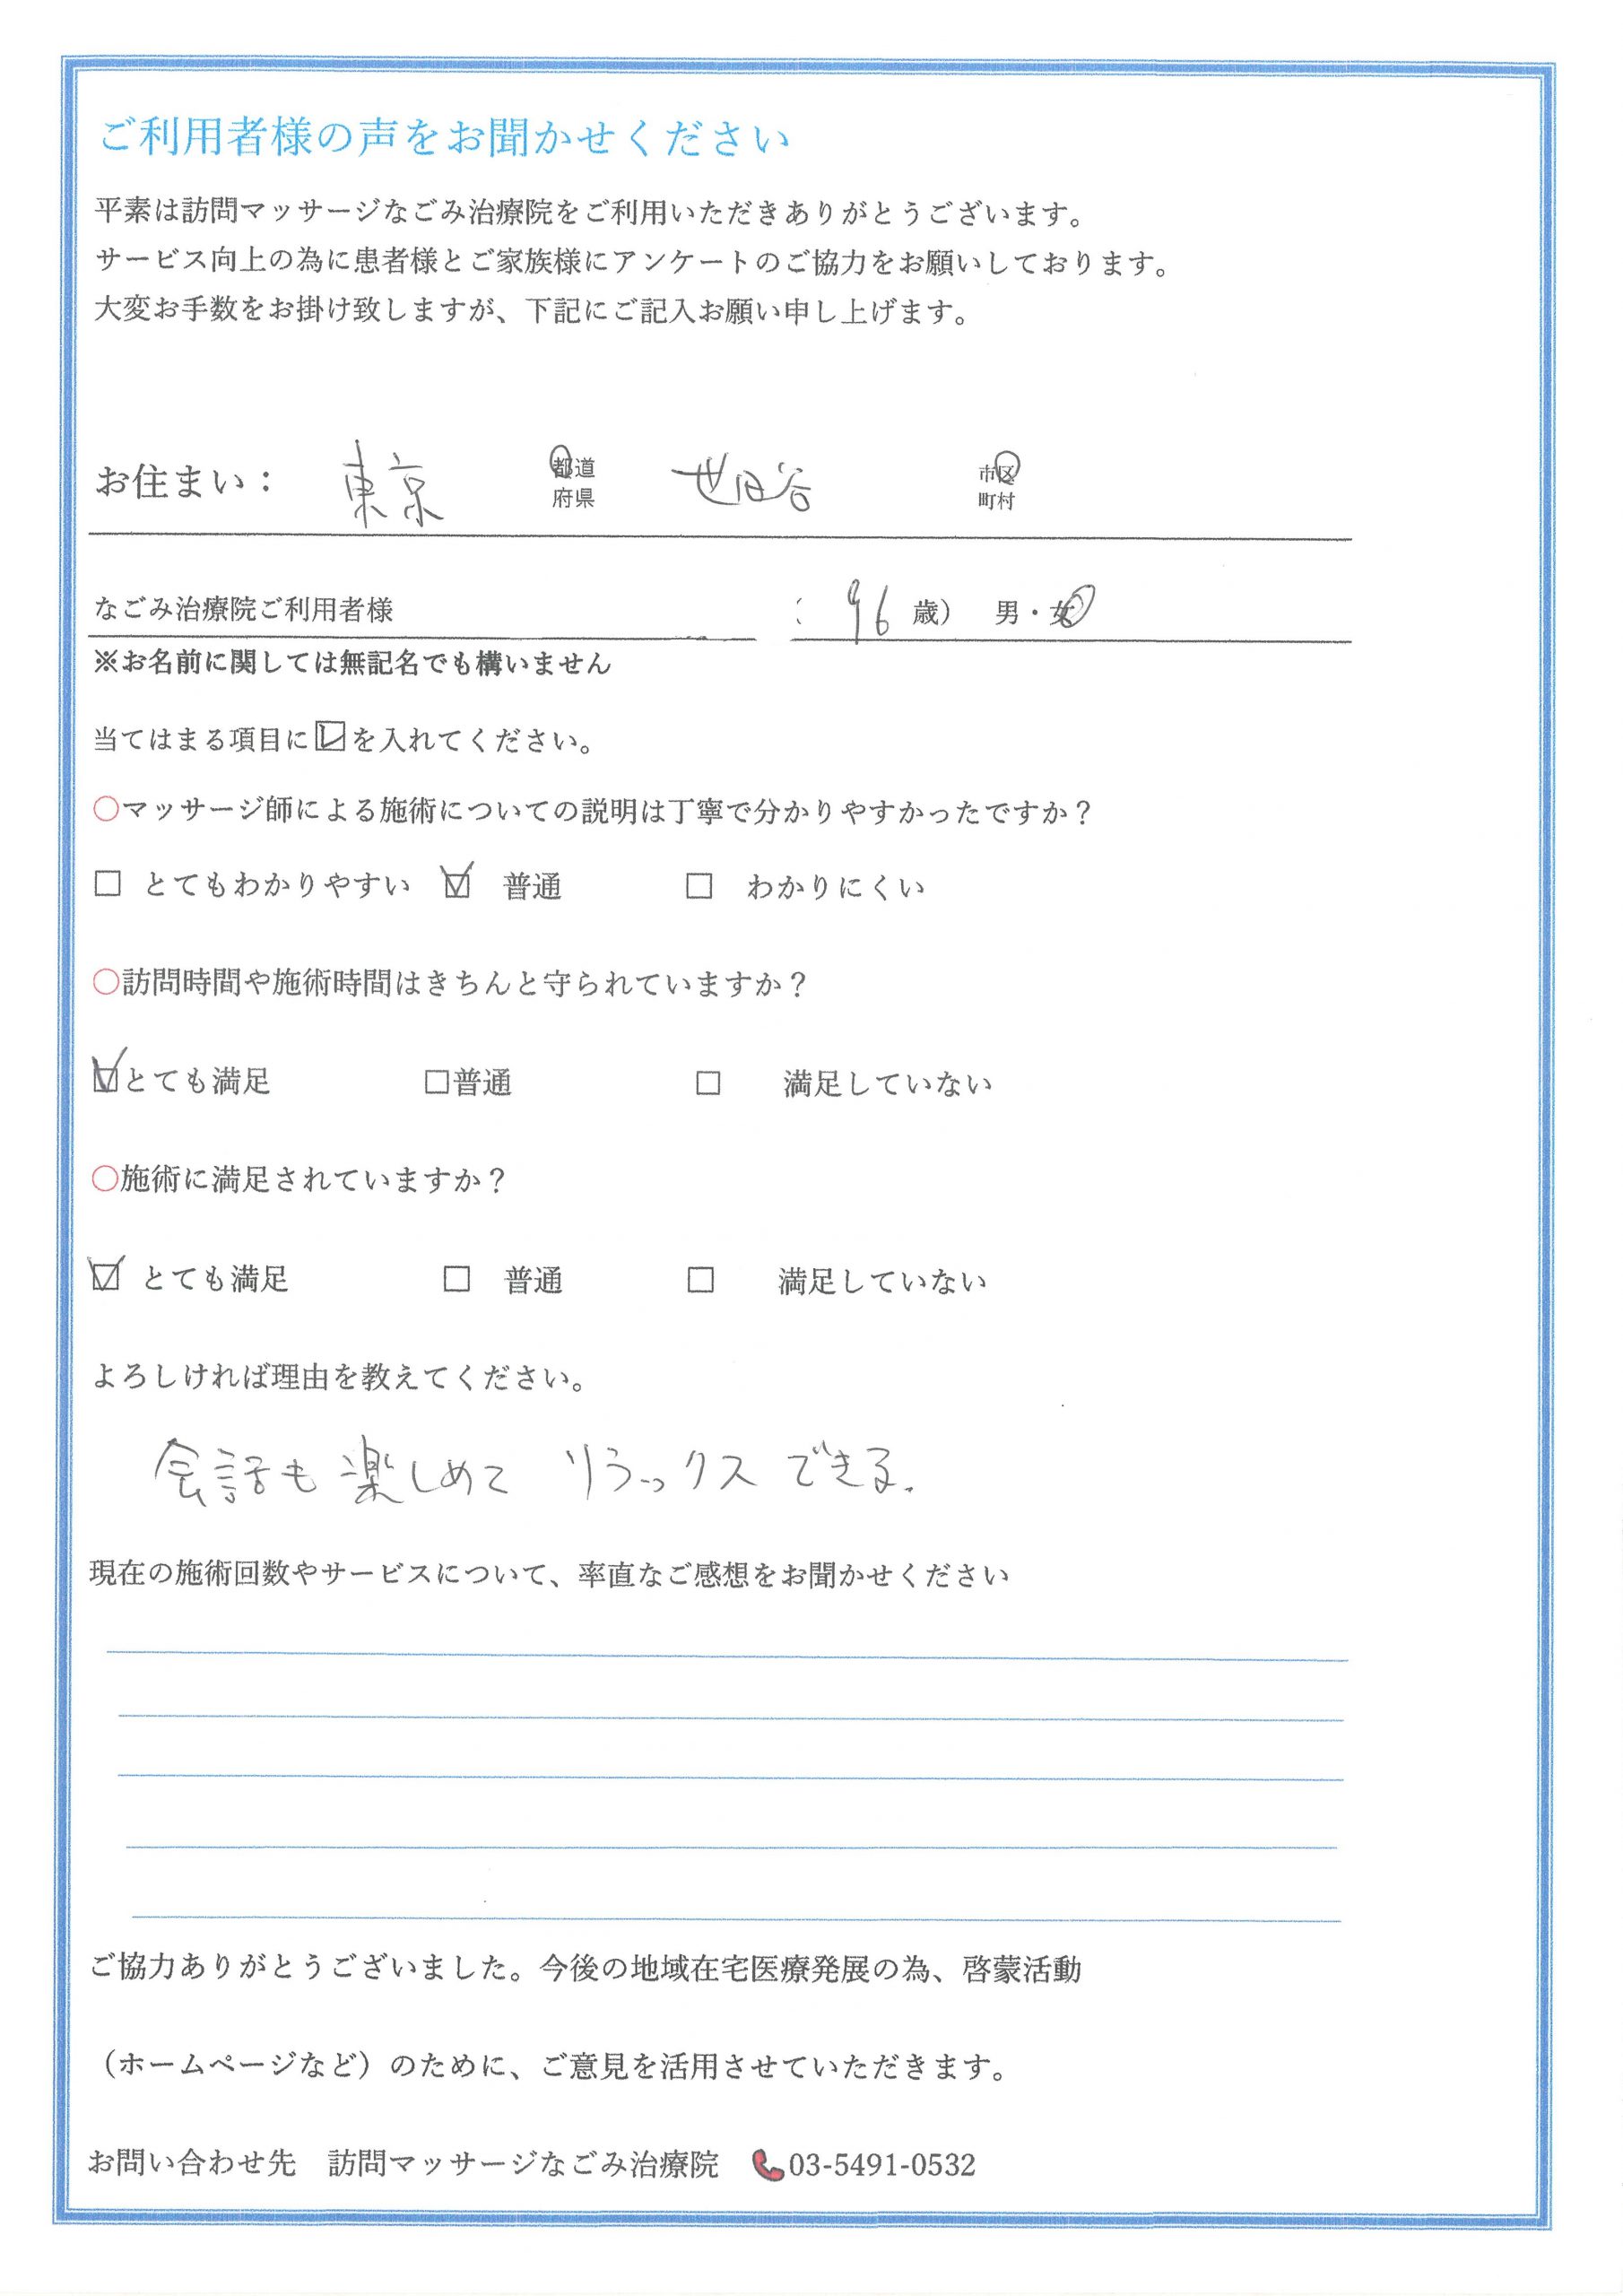 ご利用者様の声をお聞かせください
平素は訪問マッサージなごみ治療院をご利用いただきありがとうございます。
サービス向上の為に患者様とご家族様にアンケートのご協力をお願いしております。
大変お手数をお掛け致しますが、下記にご記入お願い申し上げます。
お住まい： 東京 都道府県 世田谷 市区町村
なごみ治療院ご利用者様 （ 96 歳） 男・女
※お名前に関しては無記名でも構いません
当てはまる項目に☑を入れてください。
○マッサージ師による施術についての説明は丁寧で分かりやすかったですか？
□ とてもわかりやすい ☑ 普通 □ わかりにくい
○訪問時間や施術時間はきちんと守られていますか？
☑とても満足 □普通 □ 満足していない
○施術に満足されていますか？
☑ とても満足 □ 普通 □ 満足していない
よろしければ理由を教えてください。
会話も楽しめて リラックスできる.
現在の施術回数やサービスについて、率直なご感想をお聞かせください
ご協力ありがとうございました。今後の地域在宅医療発展の為、啓蒙活動
（ホームページなど）のために、ご意見を活用させていただきます。
お問い合わせ先 訪問マッサージなごみ治療院 03-5491-0532